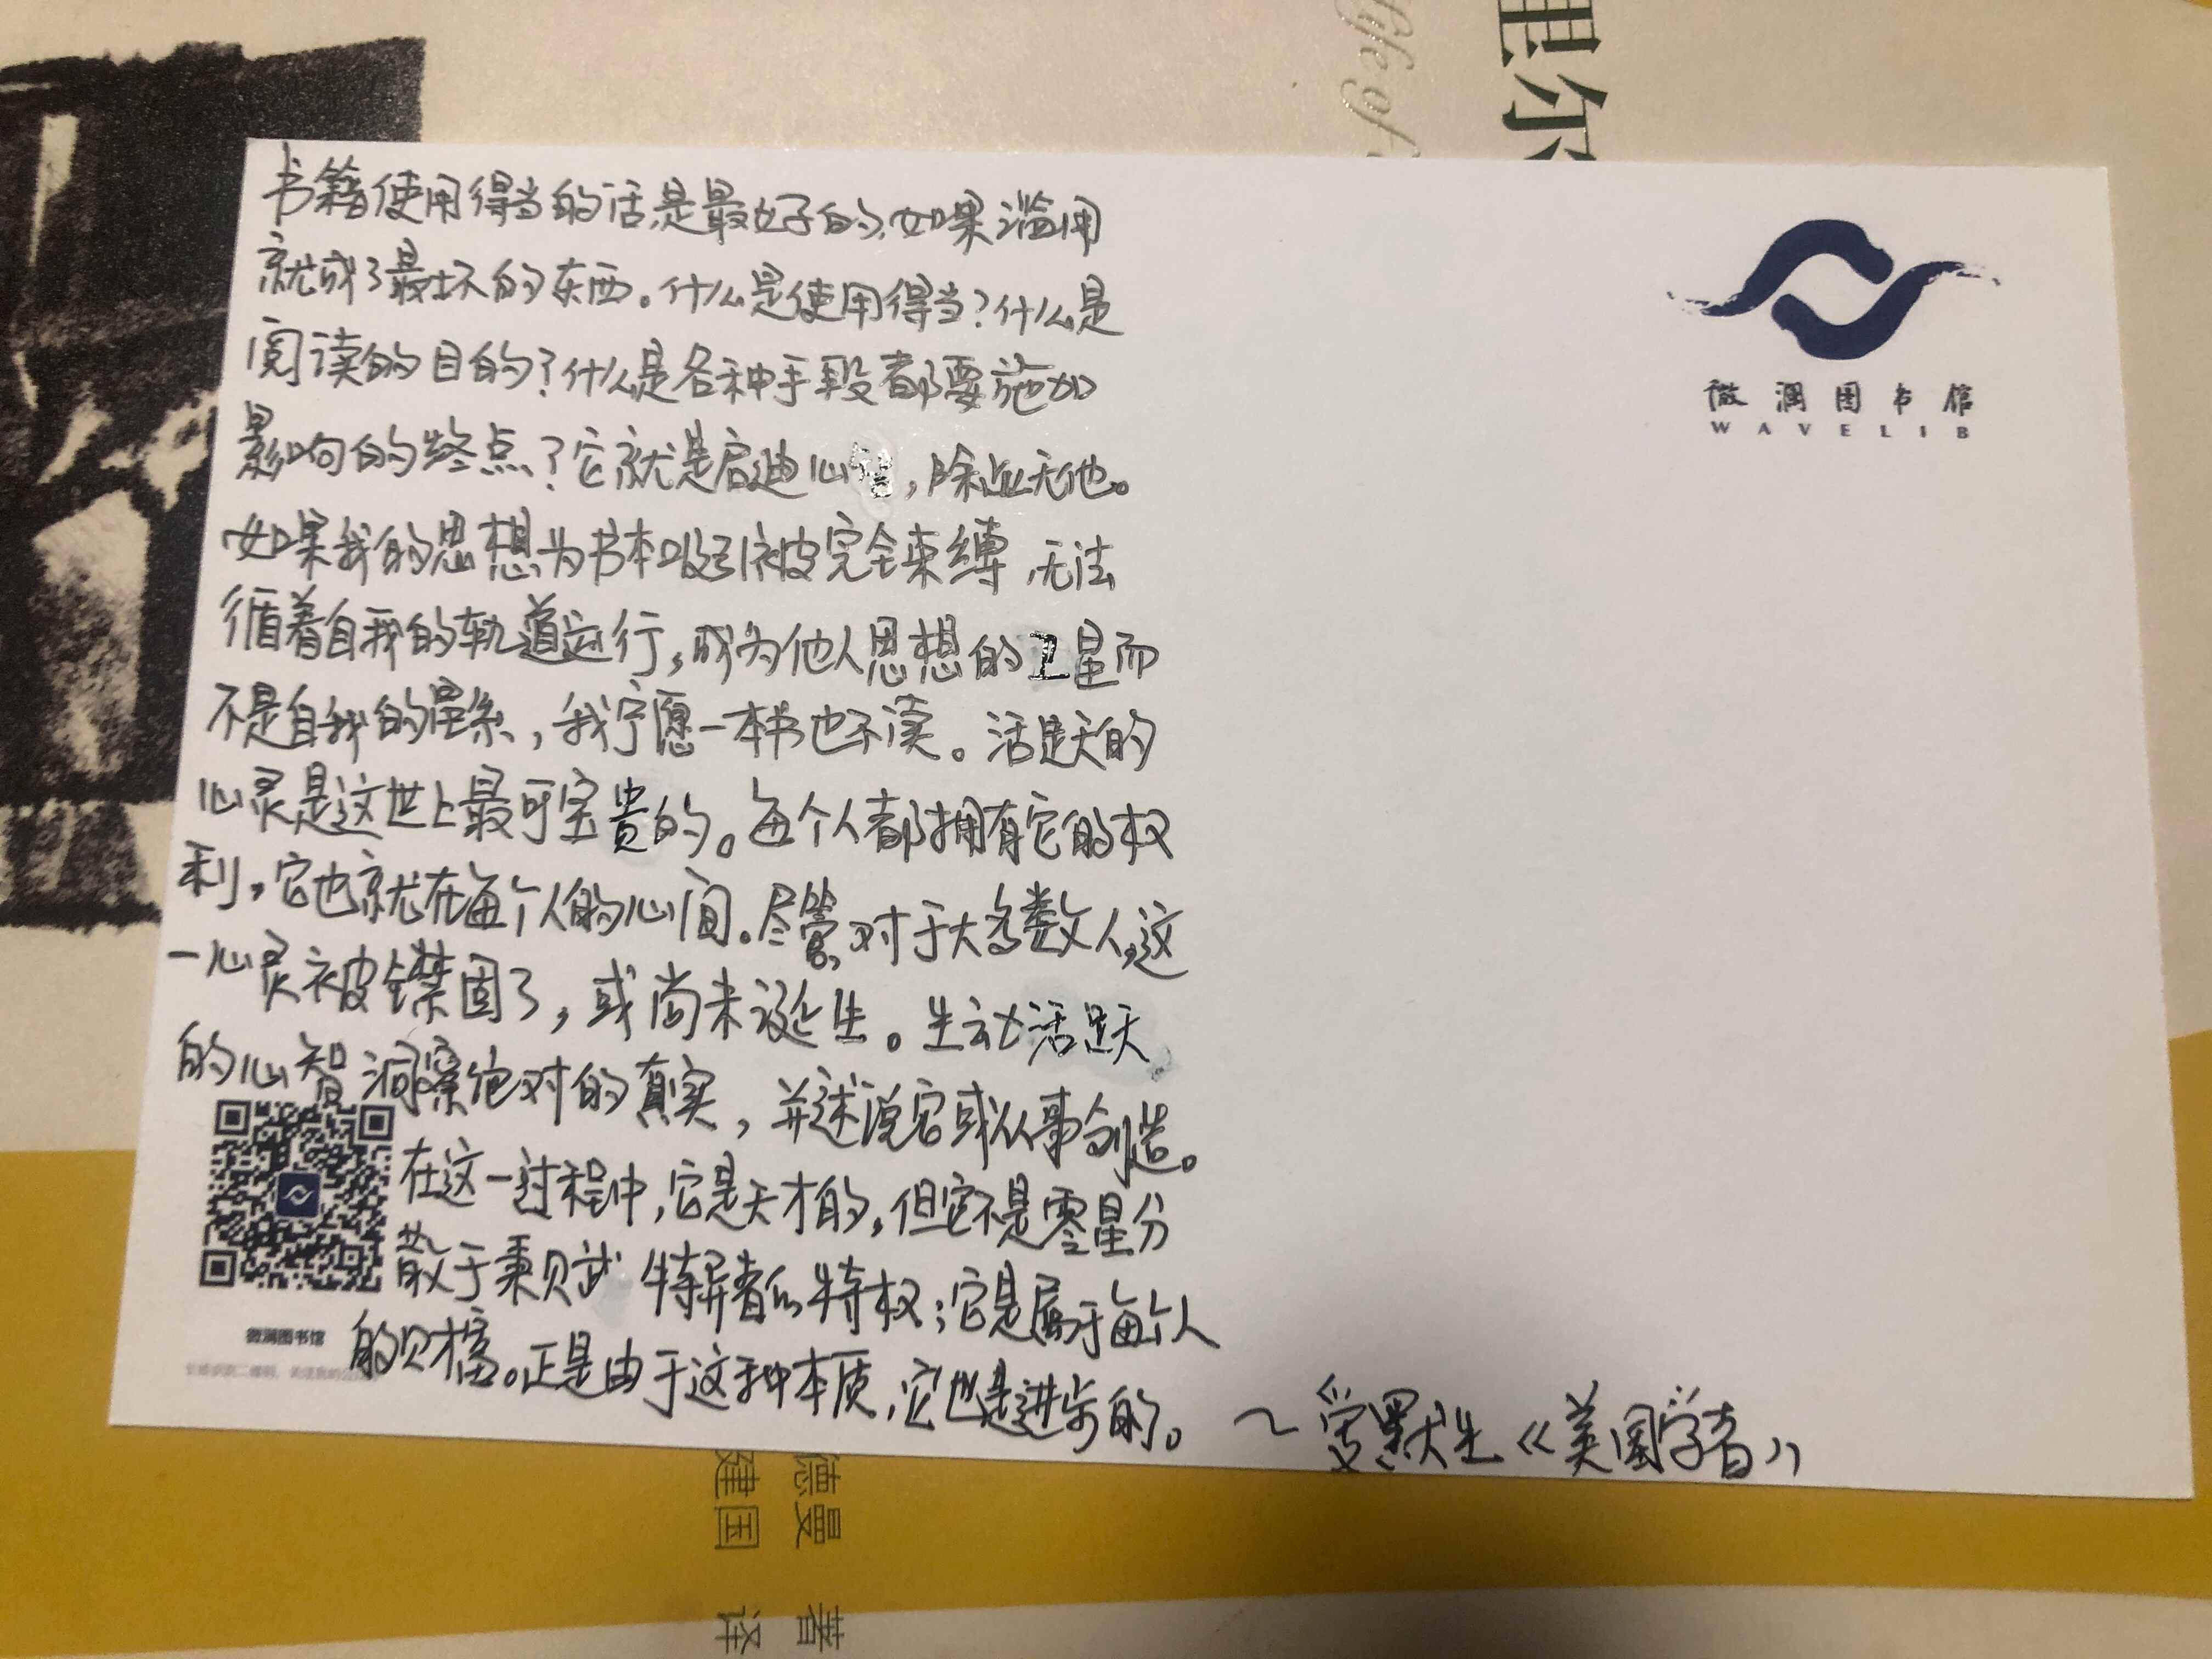 里尔
life of
微澜图书馆
WAVELIB
书籍使用得当的话,是最好的,如果滥用
就成了最坏的东西。什么是使用得当?什么是
阅读的目的?什么是各种手段都要施加
影响的终点?它就是启迪心智,除此无他。
如果我的思想为书本吸引被完全束缚,无法
循着自我的轨道运行,成为他人思想的卫星而
不是自我的星系,我宁愿一本书也不读。活跃的
心灵是这世上最可宝贵的。每个人都拥有它的权
利,它也就在每个人的心间。尽管,对于大多数人,这
一心灵被禁固了,或尚未诞生。生动活跃
的心智洞察绝对的真实,并述说它或从事创造。
在这一过程中,它是天才的,但它不是零星分
散于秉赋特异者的特权;它是属于每个人
的财富。正是由于这种本质,它也是进步的。
~爱默生《美国学者》
微澜图书馆
德曼 著
建国 译